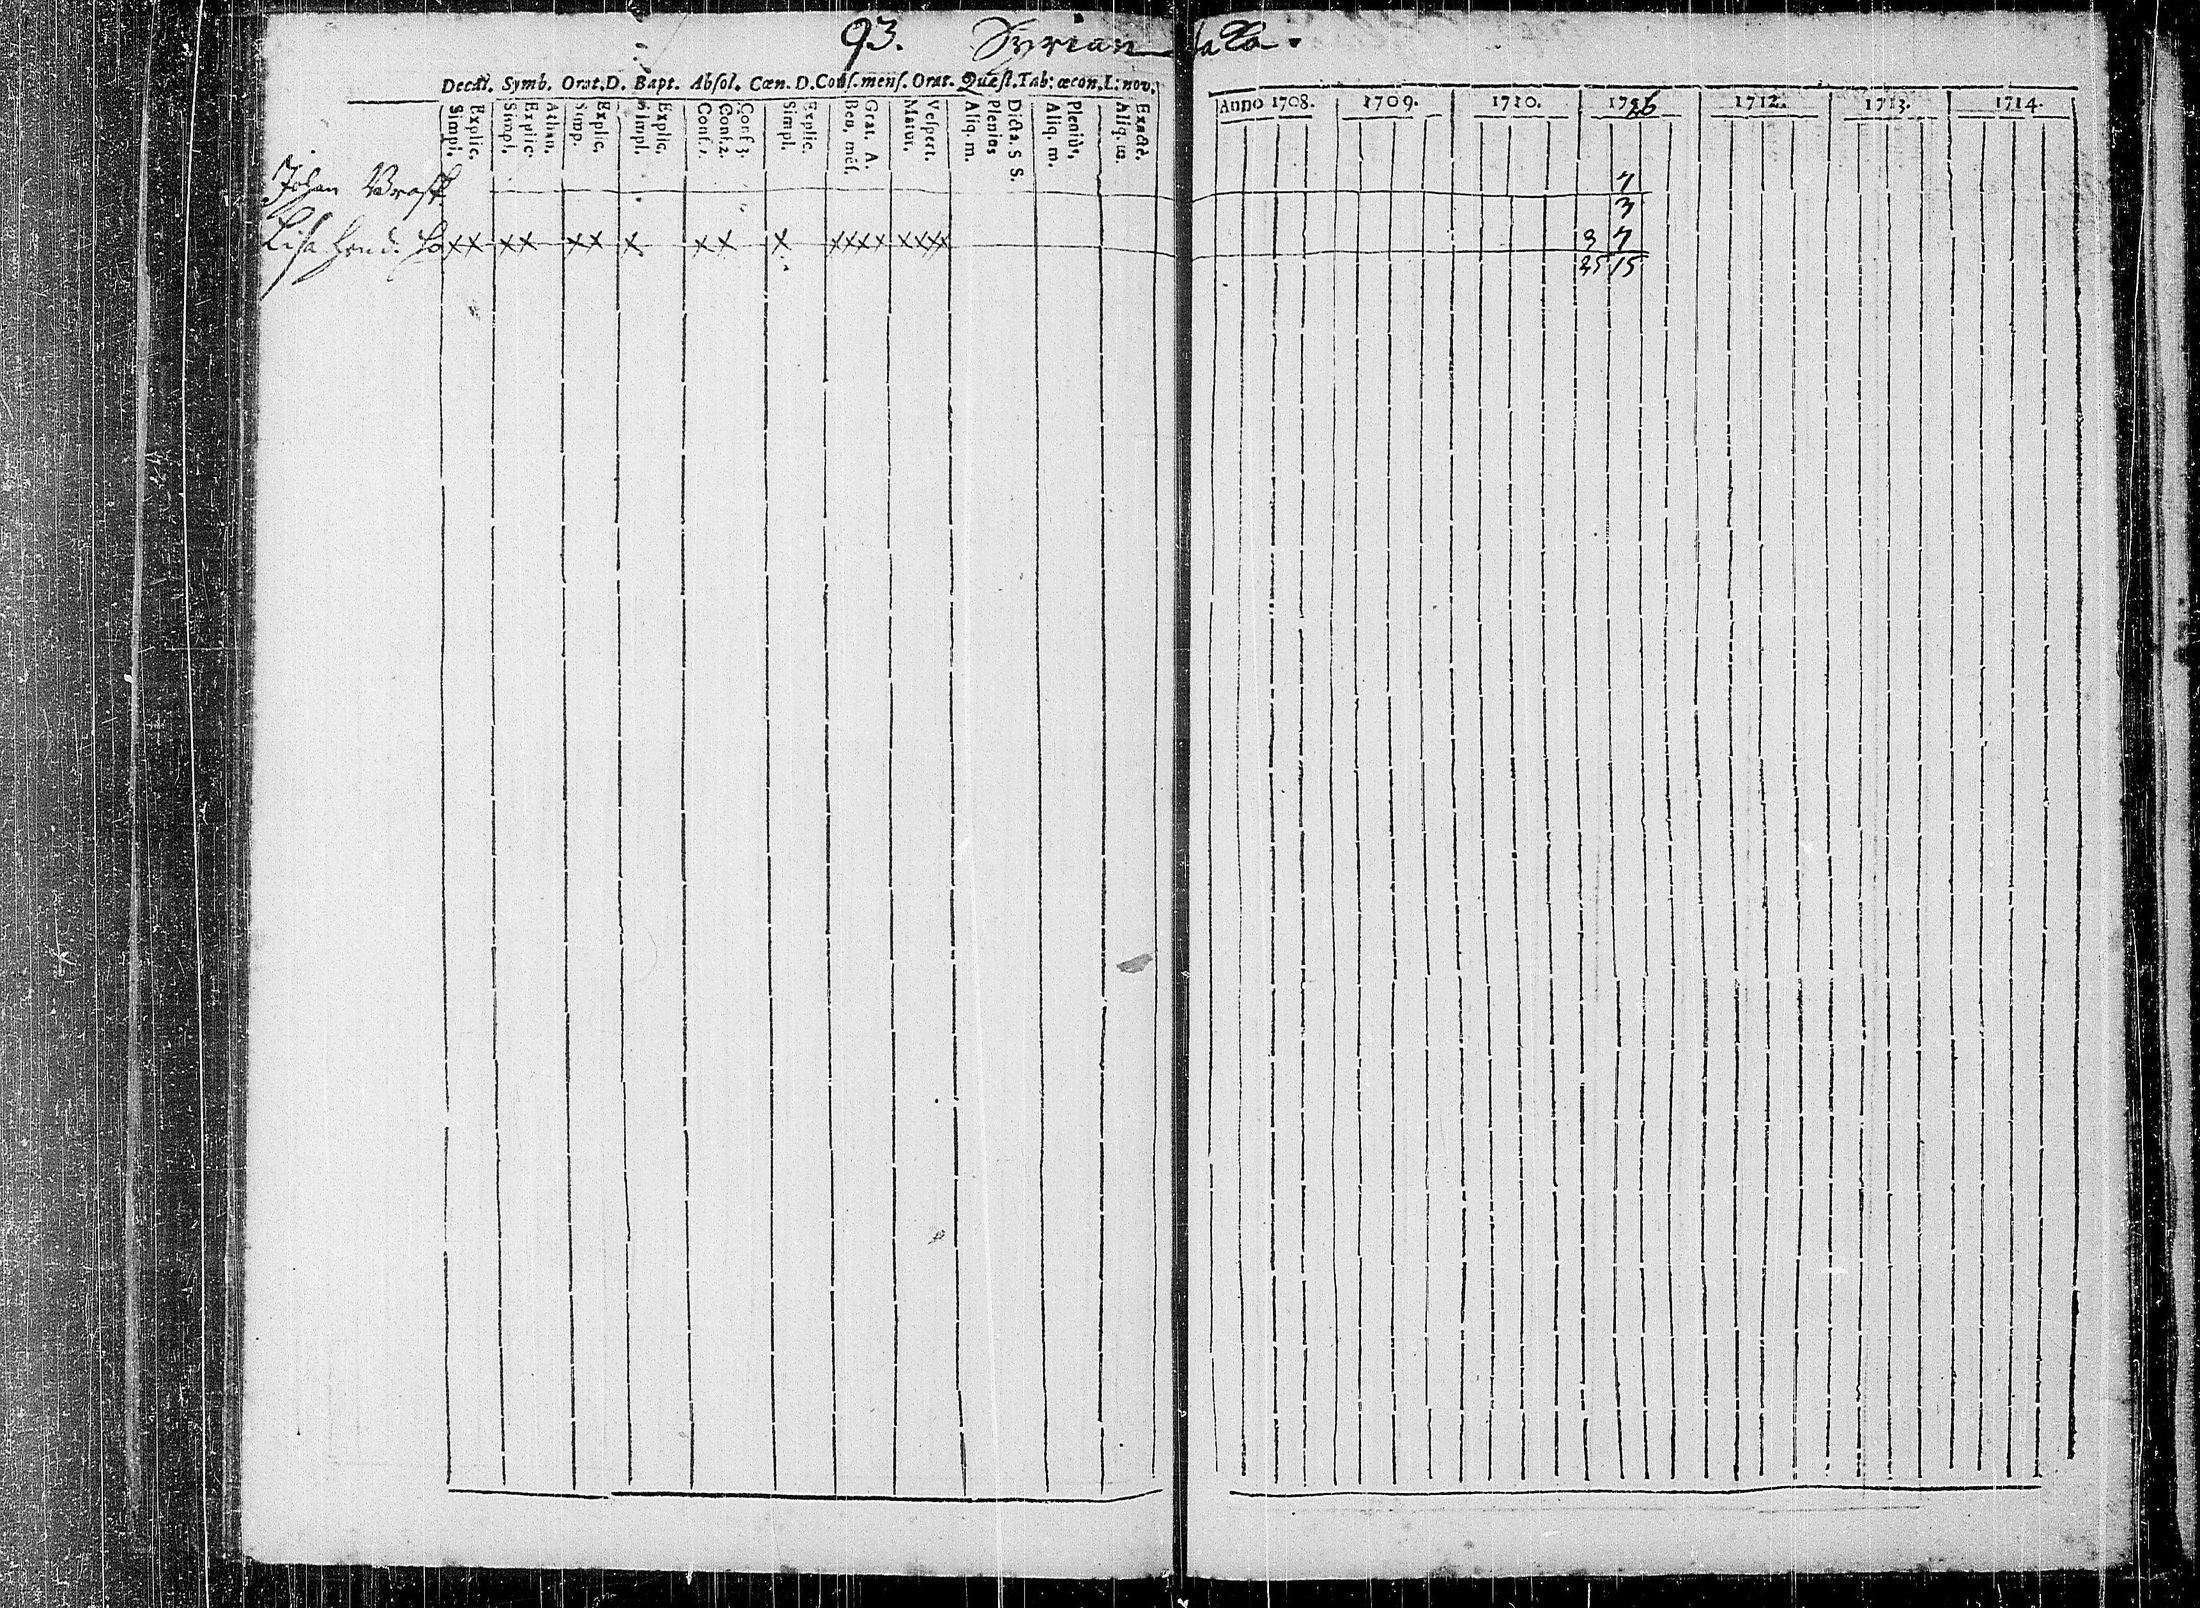 93. Syrian
Decal. Symb. Orat. D. Bapt. Absol. Cœn. D. Conf. mens. Orat. Quæst. Tab: œcon. L: nov.
Simpl. Explic. Simpl. Explic. Athan. Simp. Explic. Simpl. Explic. Conf. 1. Conf. 2. Conf 3. Simpl. Explic. Ben. mēs. Grat. A. Matut. Vespert. Aliq. m. Plenius Dicta. S S. Aliq. m. Pleniùs. Aliq. m. Exactè.
Anno 1708. 1709. 1710. 1726 1712. 1713. 1714.
Johan 7
3
Lisa xx xx xx x xx x xxxx xxxx 3 7
25 15